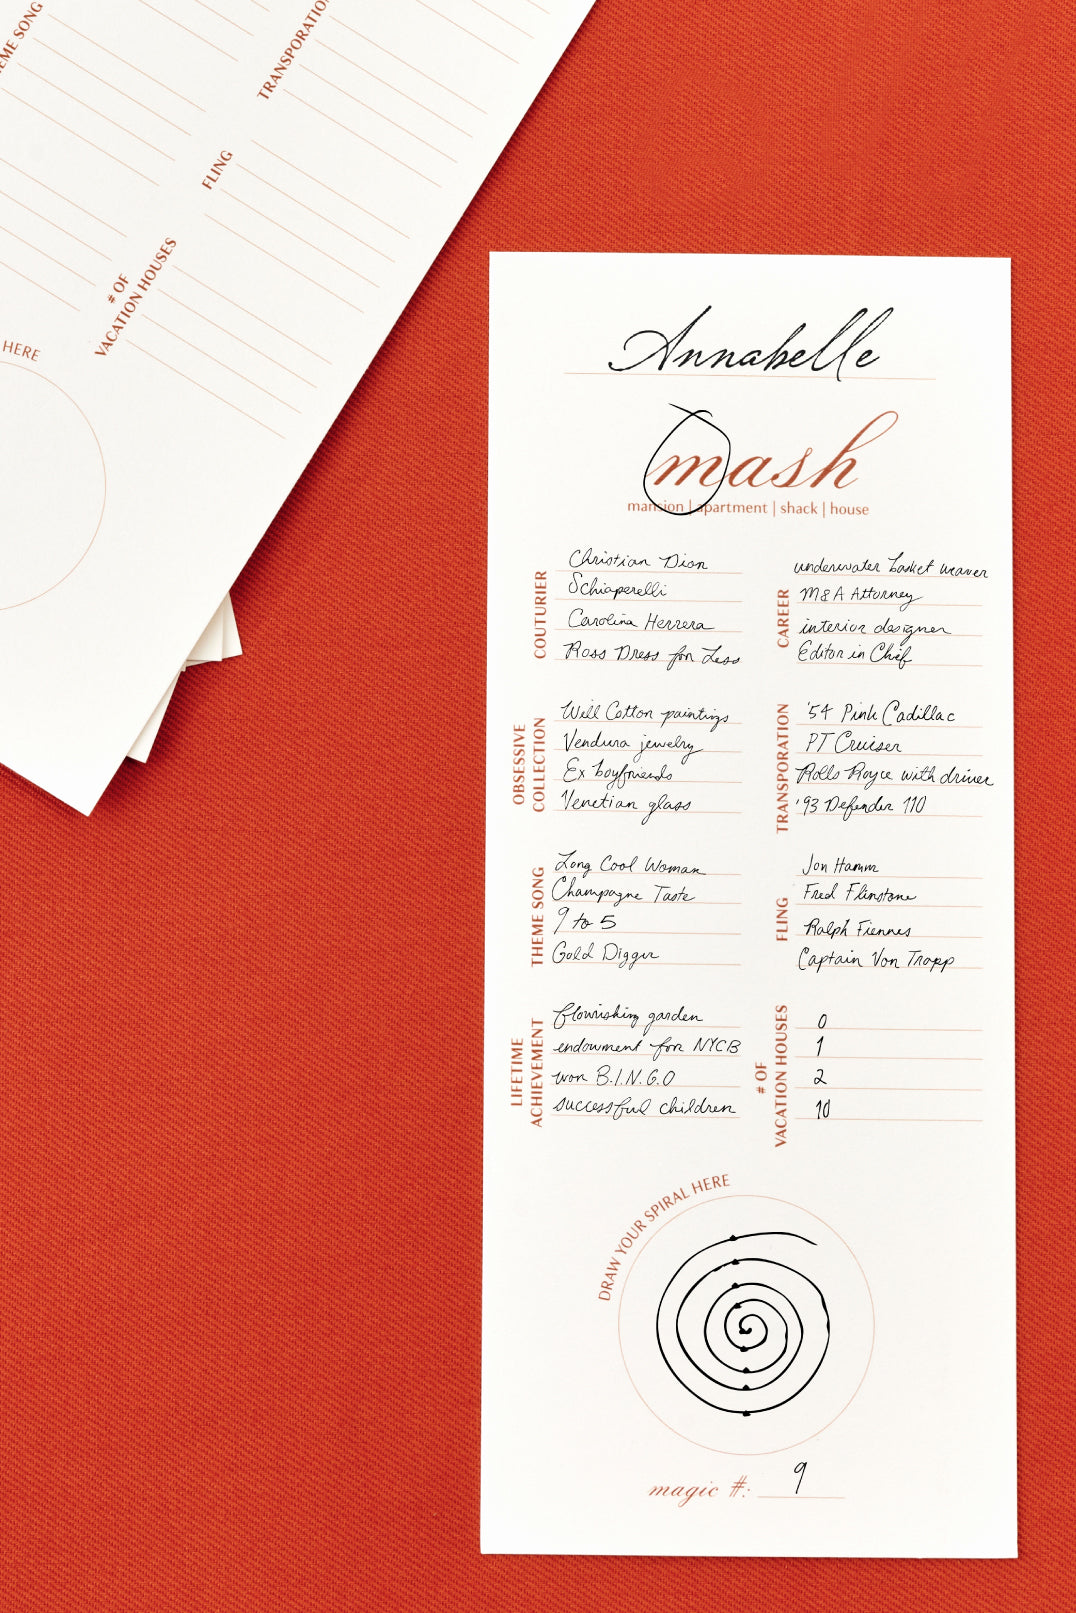 THEME SONG
TRANSPORATION
FLING
# OF
VACATION HOUSES
HERE
Annabelle
mash
mansion | apartment | shack | house
COUTURIER
Christian Dior
Schiaperelli
Carolina Herrera
Ross Dress for Less
CAREER
underwater basket weaver
M&A Attorney
interior designer
Editor in Chief
OBSESSIVE
COLLECTION
Will Cotton paintings
Verdura jewelry
Ex boyfriends
Venetian glass
TRANSPORATION
'54 Pink Cadillac
PT Cruiser
Rolls Royce with driver
'93 Defender 110
THEME SONG
Long Cool Woman
Champagne Taste
9 to 5
Gold Digger
FLING
Jon Hamm
Fred Flinstone
Ralph Fiennes
Captain Von Trapp
LIFETIME
ACHIEVEMENT
flourishing garden
endowment for NYCB
won B.I.N.G.O
successful children
# OF
VACATION HOUSES
0
1
2
10
DRAW YOUR SPIRAL HERE
magic #: 9